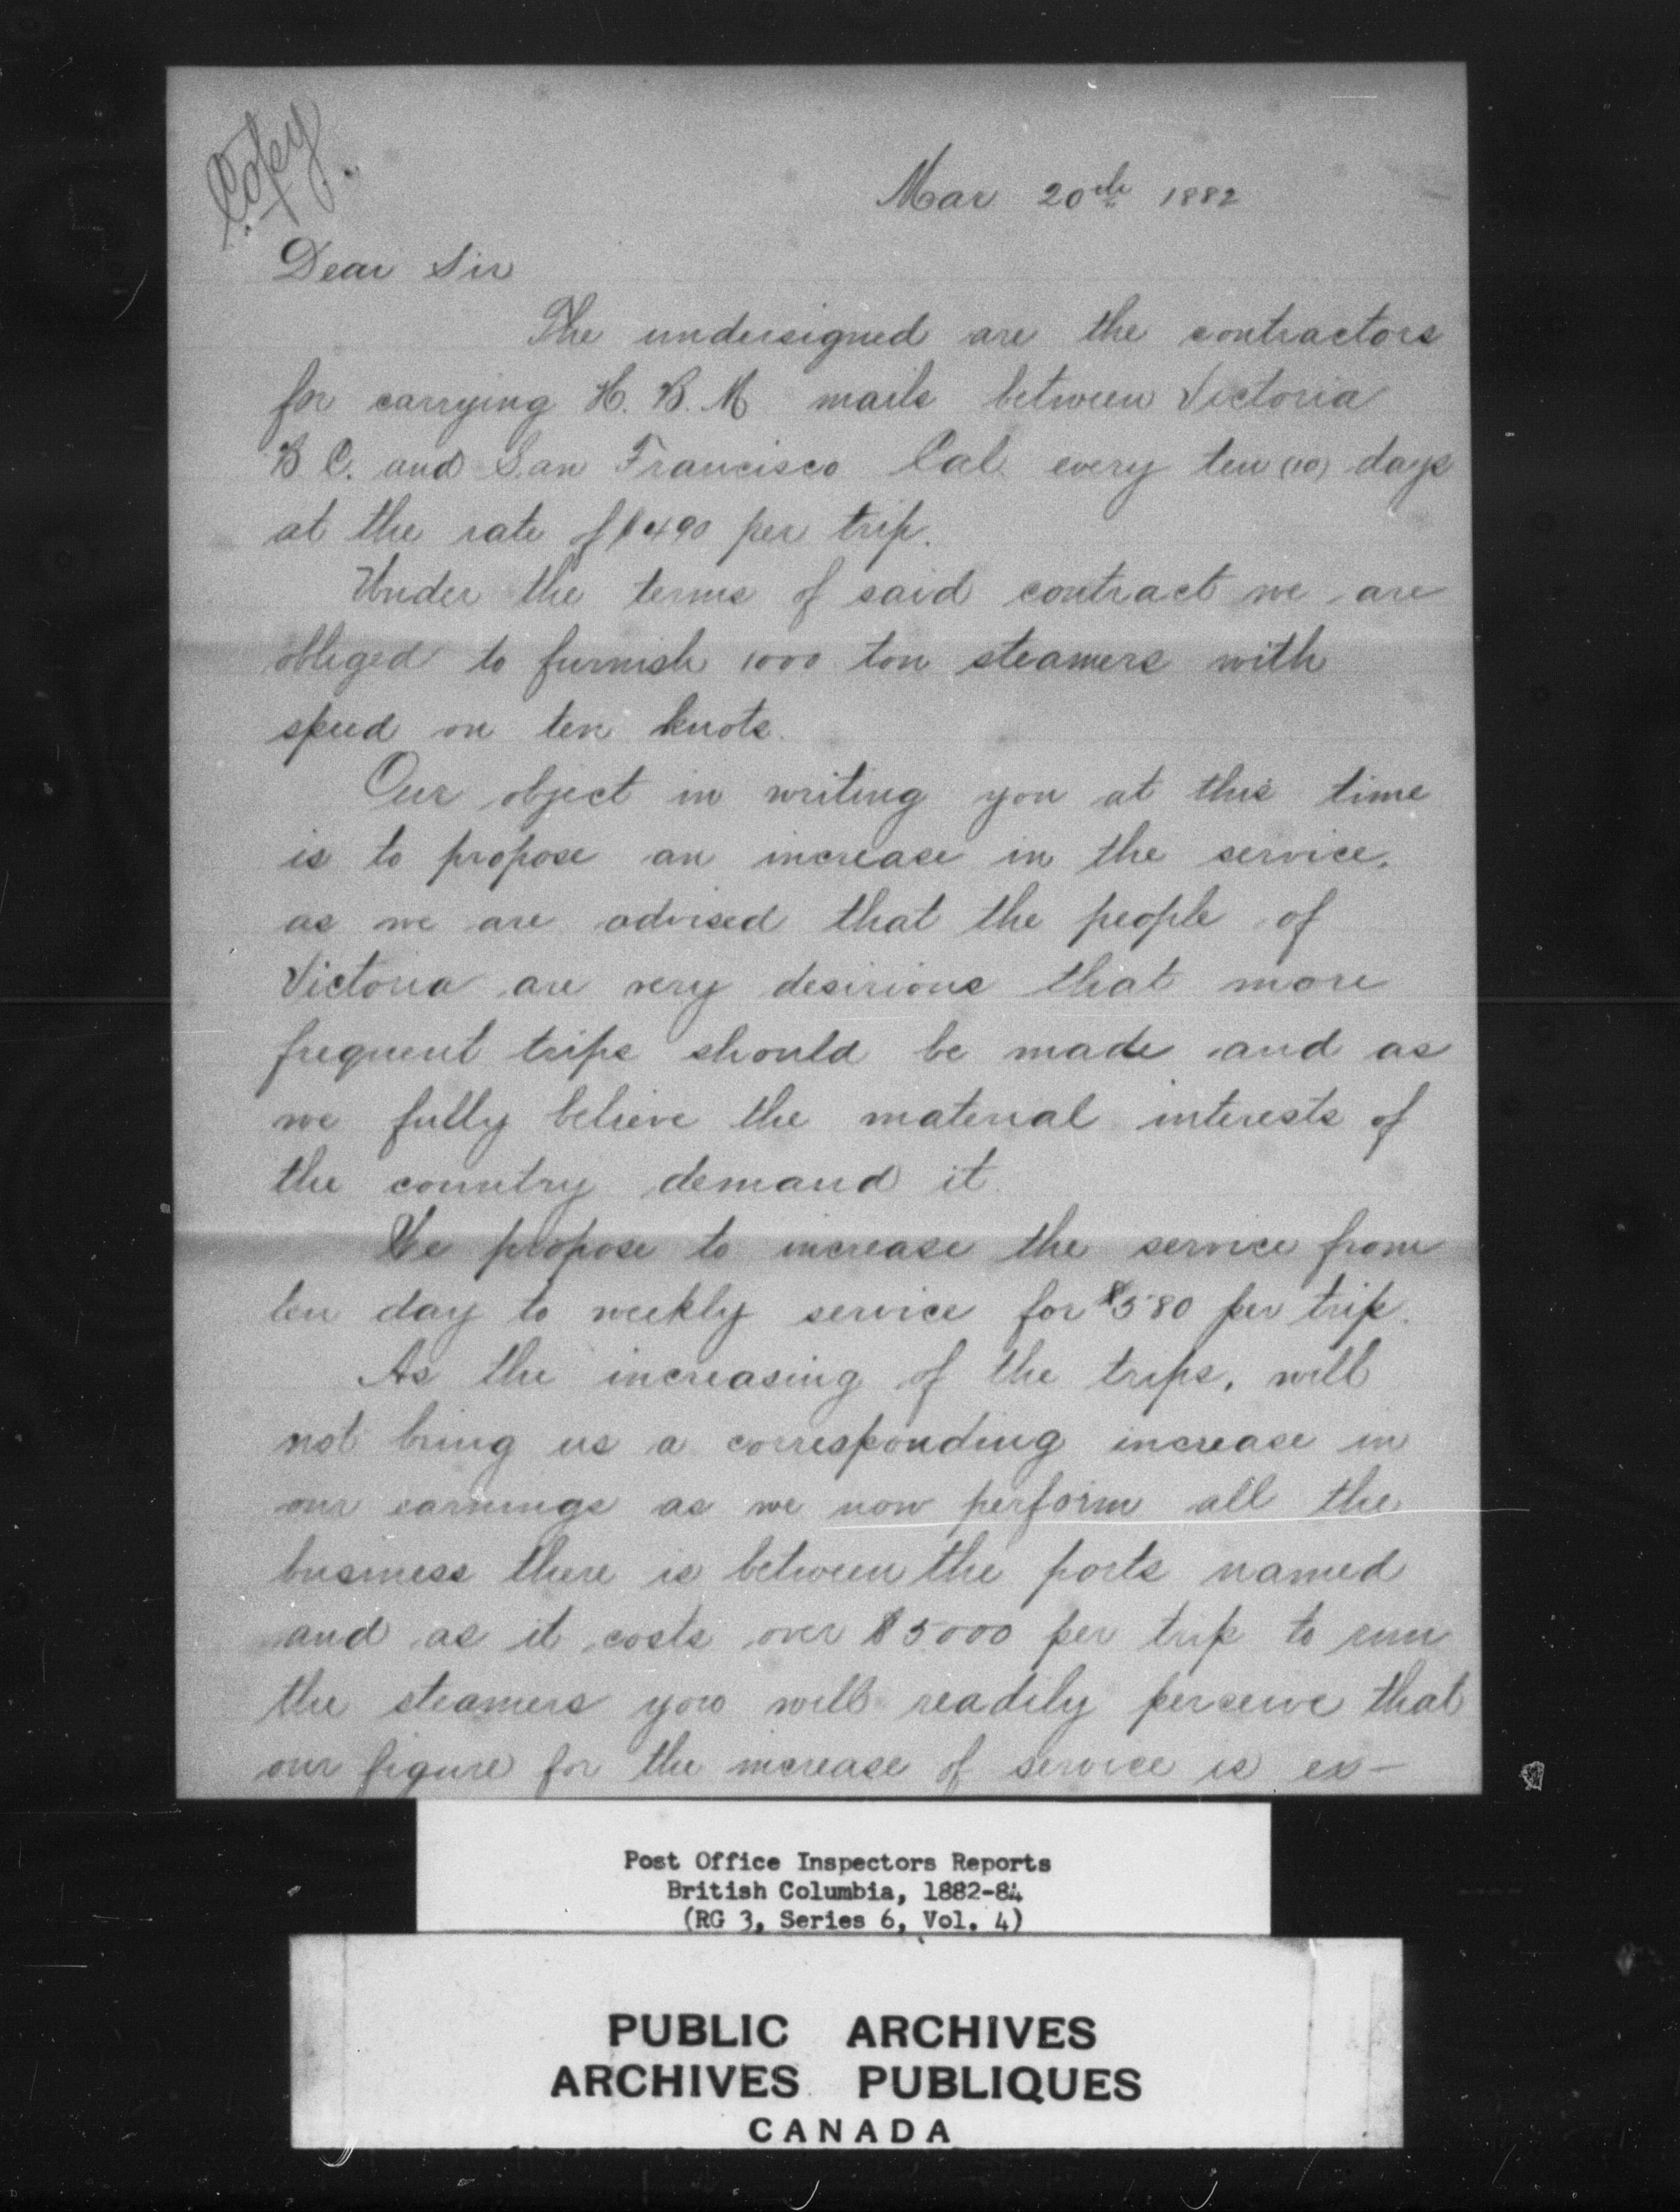 Copy.
Mar 20th 1882
Dear Sir
The undersigned are the contractors
for carrying H. B. M mails between Victoria
B C. and San Francisco Cal. every ten (10) days
at the rate of $490 per trip.
Under the terms of said contract we are
obliged to furnish 1000 ton steamers with
speed on ten knots.
Our object in writing you at this time
is to propose an increase in the service,
as we are advised that the people of
Victoria are very desirious that more
frequent trips should be made and as
we fully believe the material interests of
the country demand it.
We propose to increase the service from
ten day to weekly service for $580 per trip.
As the increasing of the trips, will
not bring us a corresponding increase in
our earnings as we now perform all the
business there is between the ports named
and as it costs over $5000 per trip to run
the steamers you will readily perceive that
our figure for the increase of service is ex-
Post Office Inspectors Reports
British Columbia, 1882-84
(RG 3, Series 6, Vol. 4)
PUBLIC ARCHIVES
ARCHIVES PUBLIQUES
CANADA